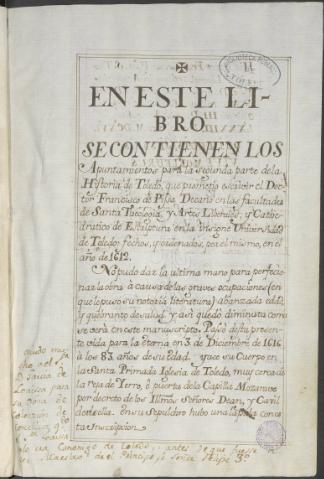 EN ESTE LI-
BRO
SE CONTIENEN LOS
Apuntamientos para la segunda parte de la
Historia de Toledo, que prometio escrivir el Doc-
tor Francisco de Pisa, Decano en las facultades
de Santa Theologia, y Artes Liberales, y Cathe-
dratico de Escriptura en la insigne Universidad
de Toledo: fechos, y ordenados, por el mismo, en el
año de 1612.
No pudo dar la ultima mano para perfecio-
nar la obra à causa de las graves ocupaciones (en
que le puso su notoria literatura) abanzada edad,
y quebranto de salud. y asi quedó diminuta como
se verà en este manuscripto. Pasó desta presen-
te vida para la eterna en 3 de Diciembre de 1616
à los 83 años de su Edad. yace su Cuerpo en
la Santa Primada Iglesia de Toledo, muy cerca de
la reja de Yerro, ò puerta de la Capilla Mozarave
por decreto de los Illmos Señores Dean, y Cavil
do de ella. En su sepulchro hubo una lapida con es
ta Inscripcion.
de
Loaisa para
Coleccion de
Concilios
Canonigo de Toledo antes que fuesse
Maestro del Principe